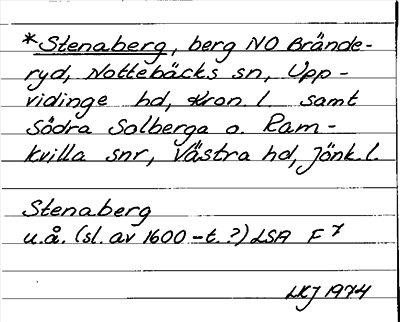 *Stenaberg, berg NO Brände-
ryd, Nottebäcks sn, Upp-
vidinge hd, Kron. l. samt
Södra Solberga o. Ram-
kvilla snr, Västra hd, Jönk. l.
Stenaberg
u.å. (sl. av 1600-t.?) LSA F 7
LKJ 1974